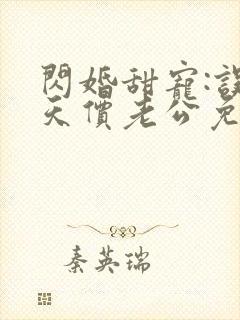 閃婚甜寵:誤
天價老公免
秦英瑞